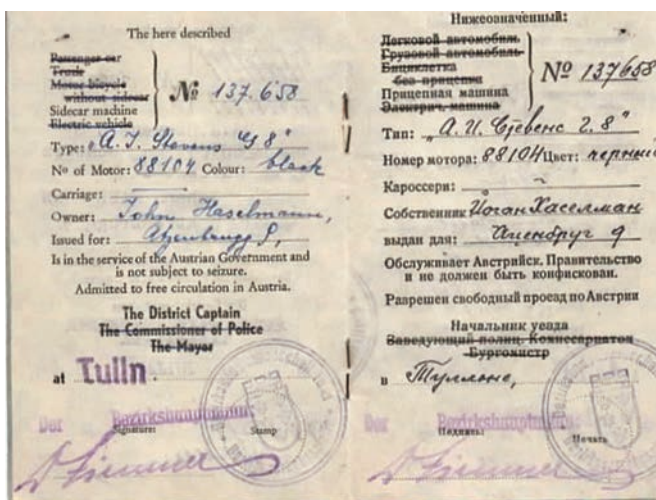 The here described
Passenger car
Truck
Motor bicycle
without sidecar
Sidecar machine
Electric vehicle
№ 137.658
Type: „A. J. Stevens G8"
No of Motor: 88104 Colour: black
Carriage:
Owner: John Haselmann,
Issued for: Atzenbrugg 9,
Is in the service of the Austrian Government and
is not subject to seizure.
Admitted to free circulation in Austria.
The District Captain
The Commissioner of Police
The Mayor
at Tulln.
Der Bezirkshauptmann:
Signature: Stamp
Нижеозначенный:
Легковой автомобиль
Грузовой автомобиль
Бициклетка
без прицепки
Прицепная машина
Электрич. машина
№ 137658
Тип: „А. И.
Номер мотора: 88104 Цвет: черный
Кароссери:
Собственник Иоган Хаселман
выдан для: 9
Обслуживает Австрийск. Правительство
и не должен быть конфискован.
Разрешен свободный проезд по Австрии
Начальник уезда
Заведующий полиц. Комиссариатом
Бургомистр
в
Der Bezirkshauptmann:
Подпись: Печать